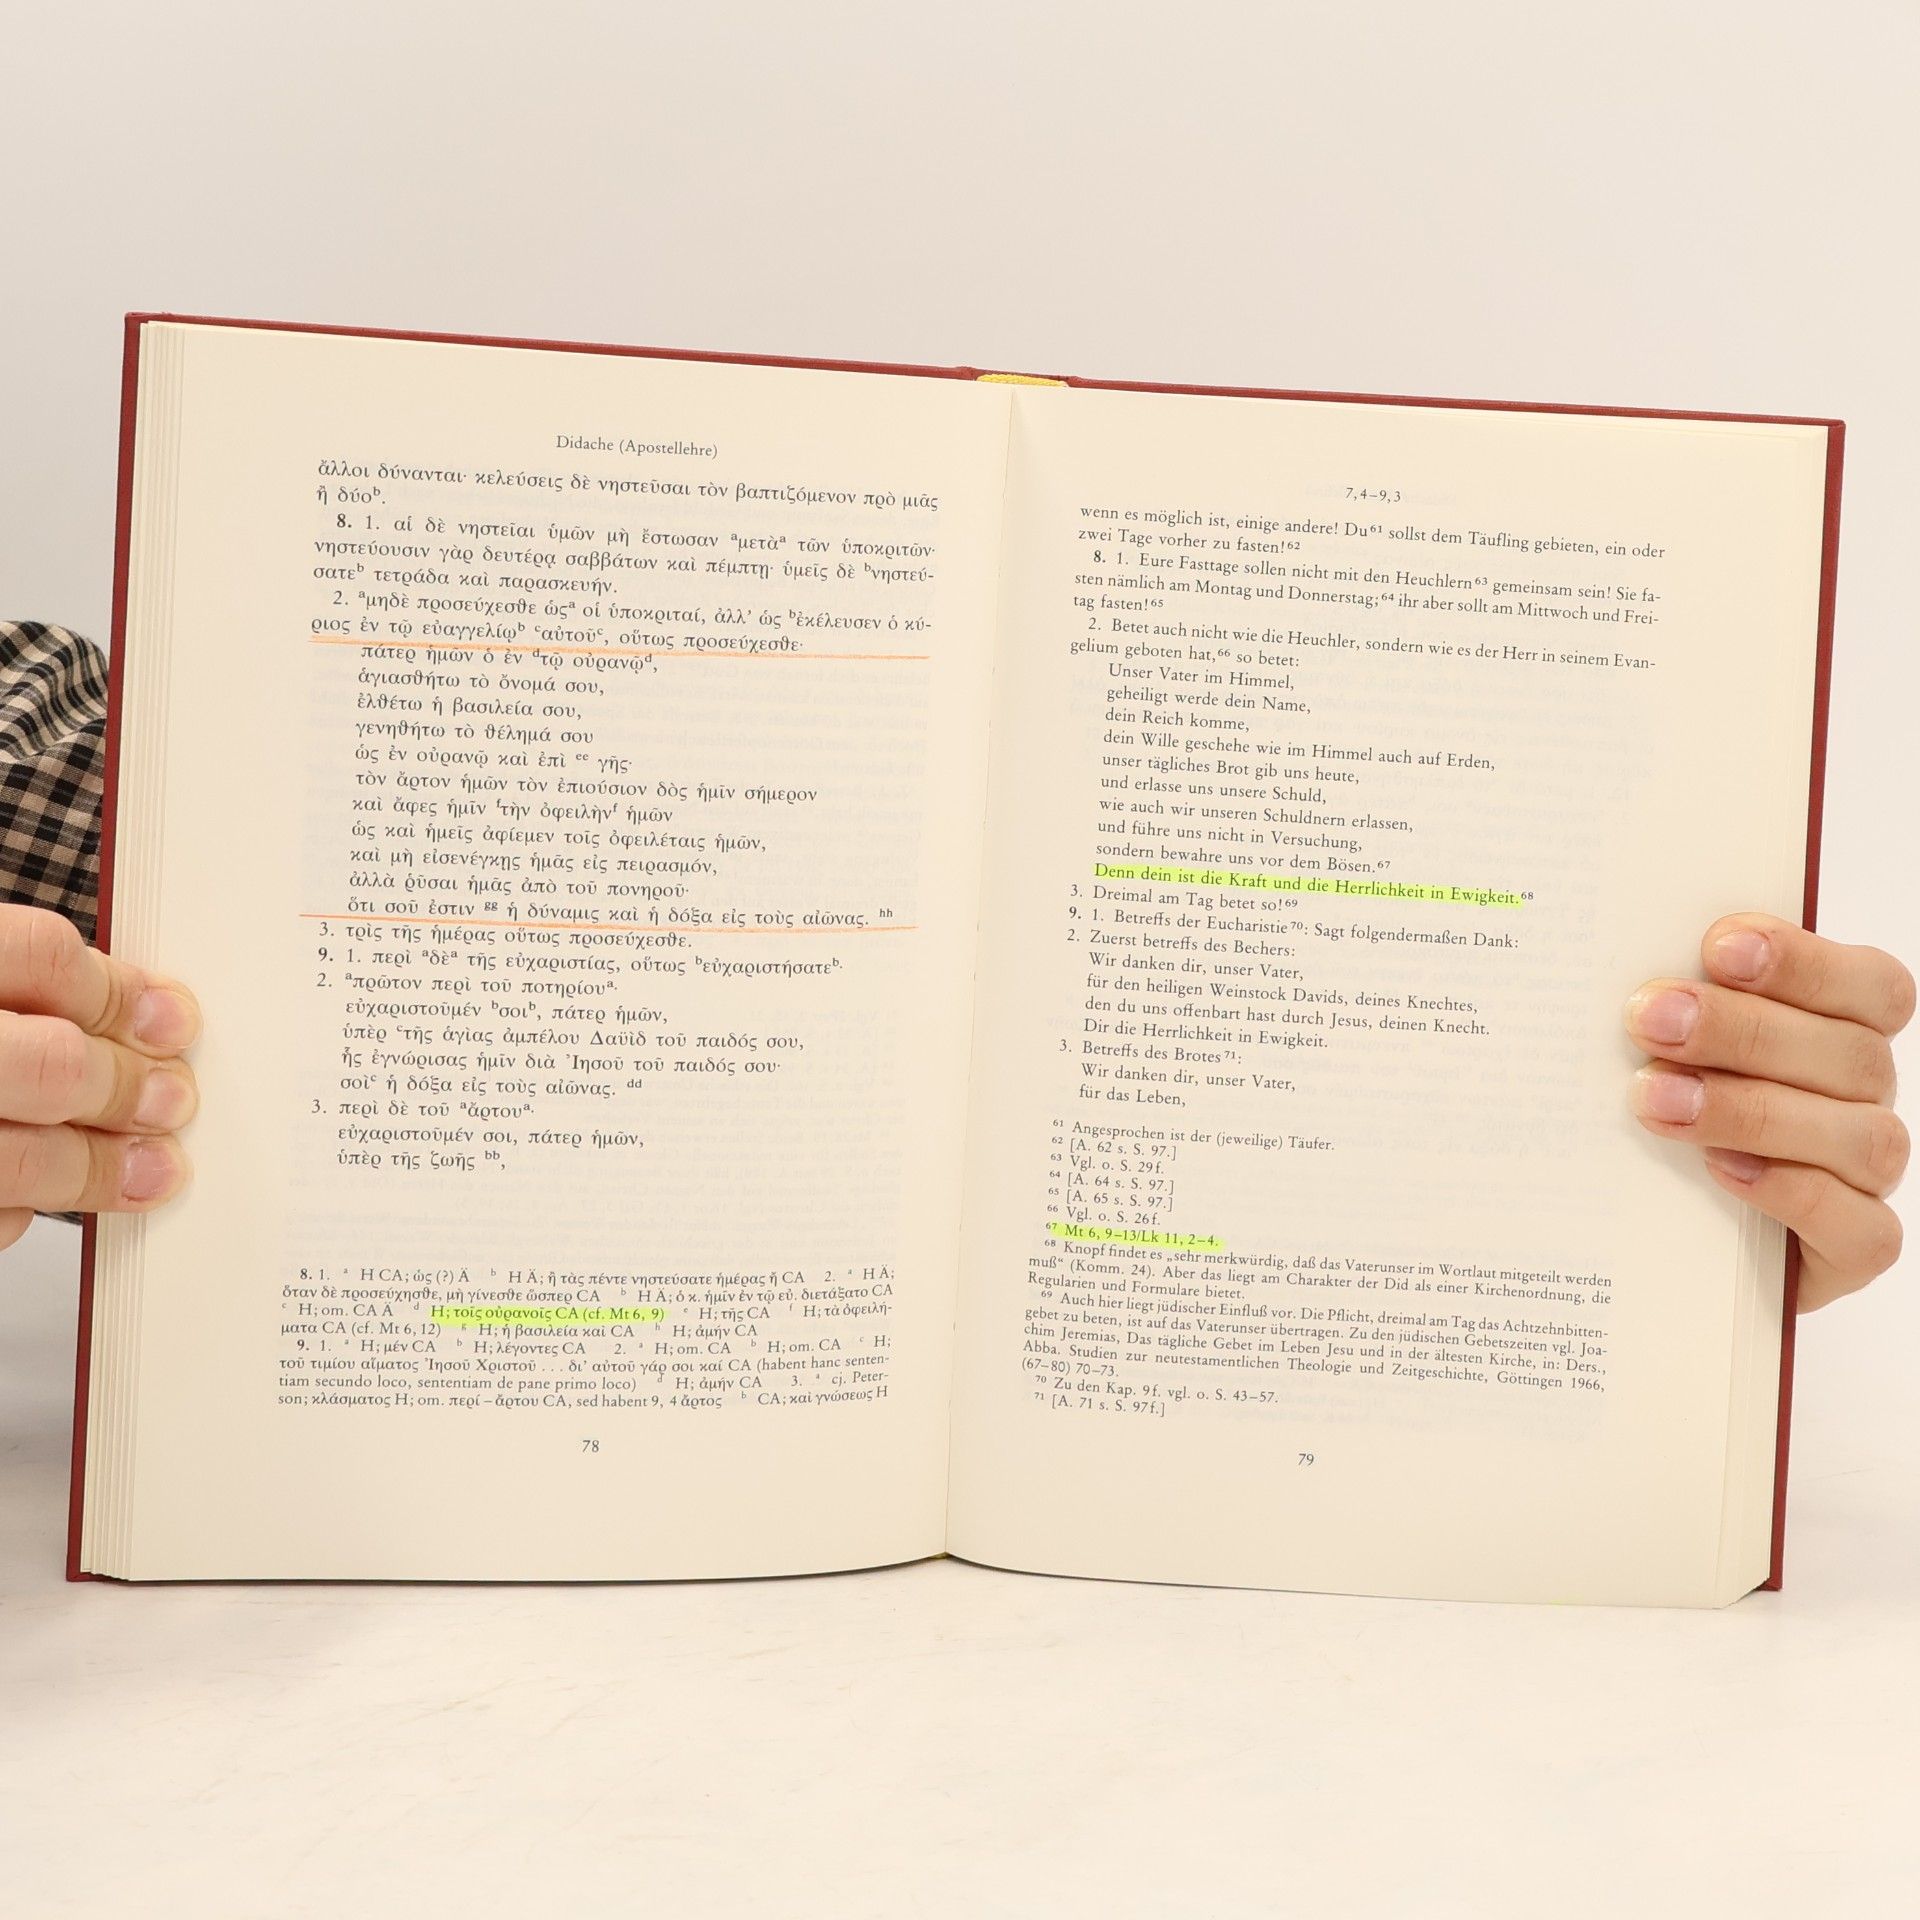 Didache (Apostellehre)
ἄλλοι δύνανται· κελεύσεις δὲ νηστεῦσαι τὸν βαπτιζόμενον πρὸ μιᾶς
ἢ δύοᵇ.
8. 1. αἱ δὲ νηστεῖαι ὑμῶν μὴ ἔστωσαν ᵃμετὰᵃ τῶν ὑποκριτῶν·
νηστεύουσιν γὰρ δευτέρᾳ σαββάτων καὶ πέμπτῃ· ὑμεῖς δὲ ᵇνηστεύ-
σατεᵇ τετράδα καὶ παρασκευήν.
2. ᵃμηδὲ προσεύχεσθε ὡςᵃ οἱ ὑποκριταί, ἀλλ’ ὡς ᵇἐκέλευσεν ὁ κύ-
ριος ἐν τῷ εὐαγγελίῳᵇ ᶜαὐτοῦᶜ, οὕτως προσεύχεσθε·
πάτερ ἡμῶν ὁ ἐν ᵈτῷ οὐρανῷᵈ,
ἁγιασθήτω τὸ ὄνομά σου,
ἐλθέτω ἡ βασιλεία σου,
γενηθήτω τὸ θέλημά σου
ὡς ἐν οὐρανῷ καὶ ἐπὶ ᵉᵉ γῆς·
τὸν ἄρτον ἡμῶν τὸν ἐπιούσιον δὸς ἡμῖν σήμερον
καὶ ἄφες ἡμῖν ᶠτὴν ὀφειλὴνᶠ ἡμῶν
ὡς καὶ ἡμεῖς ἀφίεμεν τοῖς ὀφειλέταις ἡμῶν,
καὶ μὴ εἰσενέγκῃς ἡμᾶς εἰς πειρασμόν,
ἀλλὰ ῥῦσαι ἡμᾶς ἀπὸ τοῦ πονηροῦ·
ὅτι σοῦ ἐστιν ᵍᵍ ἡ δύναμις καὶ ἡ δόξα εἰς τοὺς αἰῶνας. ʰʰ
3. τρὶς τῆς ἡμέρας οὕτως προσεύχεσθε.
9. 1. περὶ ᵃδὲᵃ τῆς εὐχαριστίας, οὕτως ᵇεὐχαριστήσατεᵇ·
2. ᵃπρῶτον περὶ τοῦ ποτηρίουᵃ·
εὐχαριστοῦμέν ᵇσοιᵇ, πάτερ ἡμῶν,
ὑπὲρ ᶜτῆς ἁγίας ἀμπέλου Δαυὶδ τοῦ παιδός σου,
ἧς ἐγνώρισας ἡμῖν διὰ Ἰησοῦ τοῦ παιδός σου·
σοὶᶜ ἡ δόξα εἰς τοὺς αἰῶνας. ᵈᵈ
3. περὶ δὲ τοῦ ᵃἄρτουᵃ·
εὐχαριστοῦμέν σοι, πάτερ ἡμῶν,
ὑπὲρ τῆς ζωῆς ᵇᵇ,
8. 1. ᵃ H CA; ὡς (?) Ä ᵇ H Ä; ἢ τὰς πέντε νηστεύσατε ἡμέρας ἤ CA 2. ᵃ H Ä;
ὅταν δὲ προσεύχησθε, μὴ γίνεσθε ὥσπερ CA ᵇ H Ä; ὁ κ. ἡμῖν ἐν τῷ εὐ. διετάξατο CA
ᶜ H; om. CA Ä ᵈ H; τοῖς οὐρανοῖς CA (cf. Mt 6, 9) ᵉ H; τῆς CA ᶠ H; τὰ ὀφειλή-
ματα CA (cf. Mt 6, 12) ᵍ H; ἡ βασιλεία καί CA ʰ H; ἀμήν CA
9. 1. ᵃ H; μέν CA ᵇ H; λέγοντες CA 2. ᵃ H; om. CA ᵇ H; om. CA ᶜ H;
τοῦ τιμίου αἵματος Ἰησοῦ Χριστοῦ . . . δι’ αὐτοῦ γάρ σοι καί CA (habent hanc senten-
tiam secundo loco, sententiam de pane primo loco) ᵈ H; ἀμήν CA 3. ᵃ cj. Peter-
son; κλάσματος H; om. περί – ἄρτου CA, sed habent 9, 4 ἄρτος ᵇ CA; καὶ γνώσεως H
78
7,4–9,3
wenn es möglich ist, einige andere! Du⁶¹ sollst dem Täufling gebieten, ein oder
zwei Tage vorher zu fasten!⁶²
8. 1. Eure Fasttage sollen nicht mit den Heuchlern⁶³ gemeinsam sein! Sie fa-
sten nämlich am Montag und Donnerstag;⁶⁴ ihr aber sollt am Mittwoch und Frei-
tag fasten!⁶⁵
2. Betet auch nicht wie die Heuchler, sondern wie es der Herr in seinem Evan-
gelium geboten hat,⁶⁶ so betet:
Unser Vater im Himmel,
geheiligt werde dein Name,
dein Reich komme,
dein Wille geschehe wie im Himmel auch auf Erden,
unser tägliches Brot gib uns heute,
und erlasse uns unsere Schuld,
wie auch wir unseren Schuldnern erlassen,
und führe uns nicht in Versuchung,
sondern bewahre uns vor dem Bösen.⁶⁷
Denn dein ist die Kraft und die Herrlichkeit in Ewigkeit.⁶⁸
3. Dreimal am Tag betet so!⁶⁹
9. 1. Betreffs der Eucharistie⁷⁰: Sagt folgendermaßen Dank:
2. Zuerst betreffs des Bechers:
Wir danken dir, unser Vater,
für den heiligen Weinstock Davids, deines Knechtes,
den du uns offenbart hast durch Jesus, deinen Knecht.
Dir die Herrlichkeit in Ewigkeit.
3. Betreffs des Brotes⁷¹:
Wir danken dir, unser Vater,
für das Leben,
⁶¹ Angesprochen ist der (jeweilige) Täufer.
⁶² [A. 62 s. S. 97.]
⁶³ Vgl. o. S. 29f.
⁶⁴ [A. 64 s. S. 97.]
⁶⁵ [A. 65 s. S. 97.]
⁶⁶ Vgl. o. S. 26f.
⁶⁷ Mt 6, 9–13/Lk 11, 2–4.
⁶⁸ Knopf findet es „sehr merkwürdig, daß das Vaterunser im Wortlaut mitgeteilt werden
muß“ (Komm. 24). Aber das liegt am Charakter der Did als einer Kirchenordnung, die
Regularien und Formulare bietet.
⁶⁹ Auch hier liegt jüdischer Einfluß vor. Die Pflicht, dreimal am Tag das Achtzehnbitten-
gebet zu beten, ist auf das Vaterunser übertragen. Zu den jüdischen Gebetszeiten vgl. Joa-
chim Jeremias, Das tägliche Gebet im Leben Jesu und in der ältesten Kirche, in: Ders.,
Abba. Studien zur neutestamentlichen Theologie und Zeitgeschichte, Göttingen 1966,
(67–80) 70–73.
⁷⁰ Zu den Kap. 9f. vgl. o. S. 43–57.
⁷¹ [A. 71 s. S. 97f.]
79